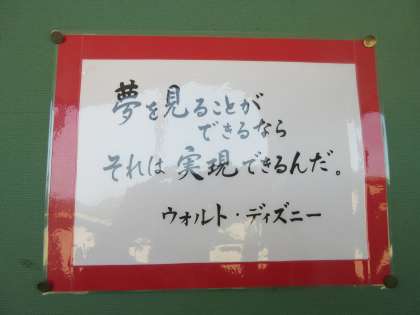 夢を見ることが
できるなら
それは実現できるんだ。
ウォルト・ディズニー